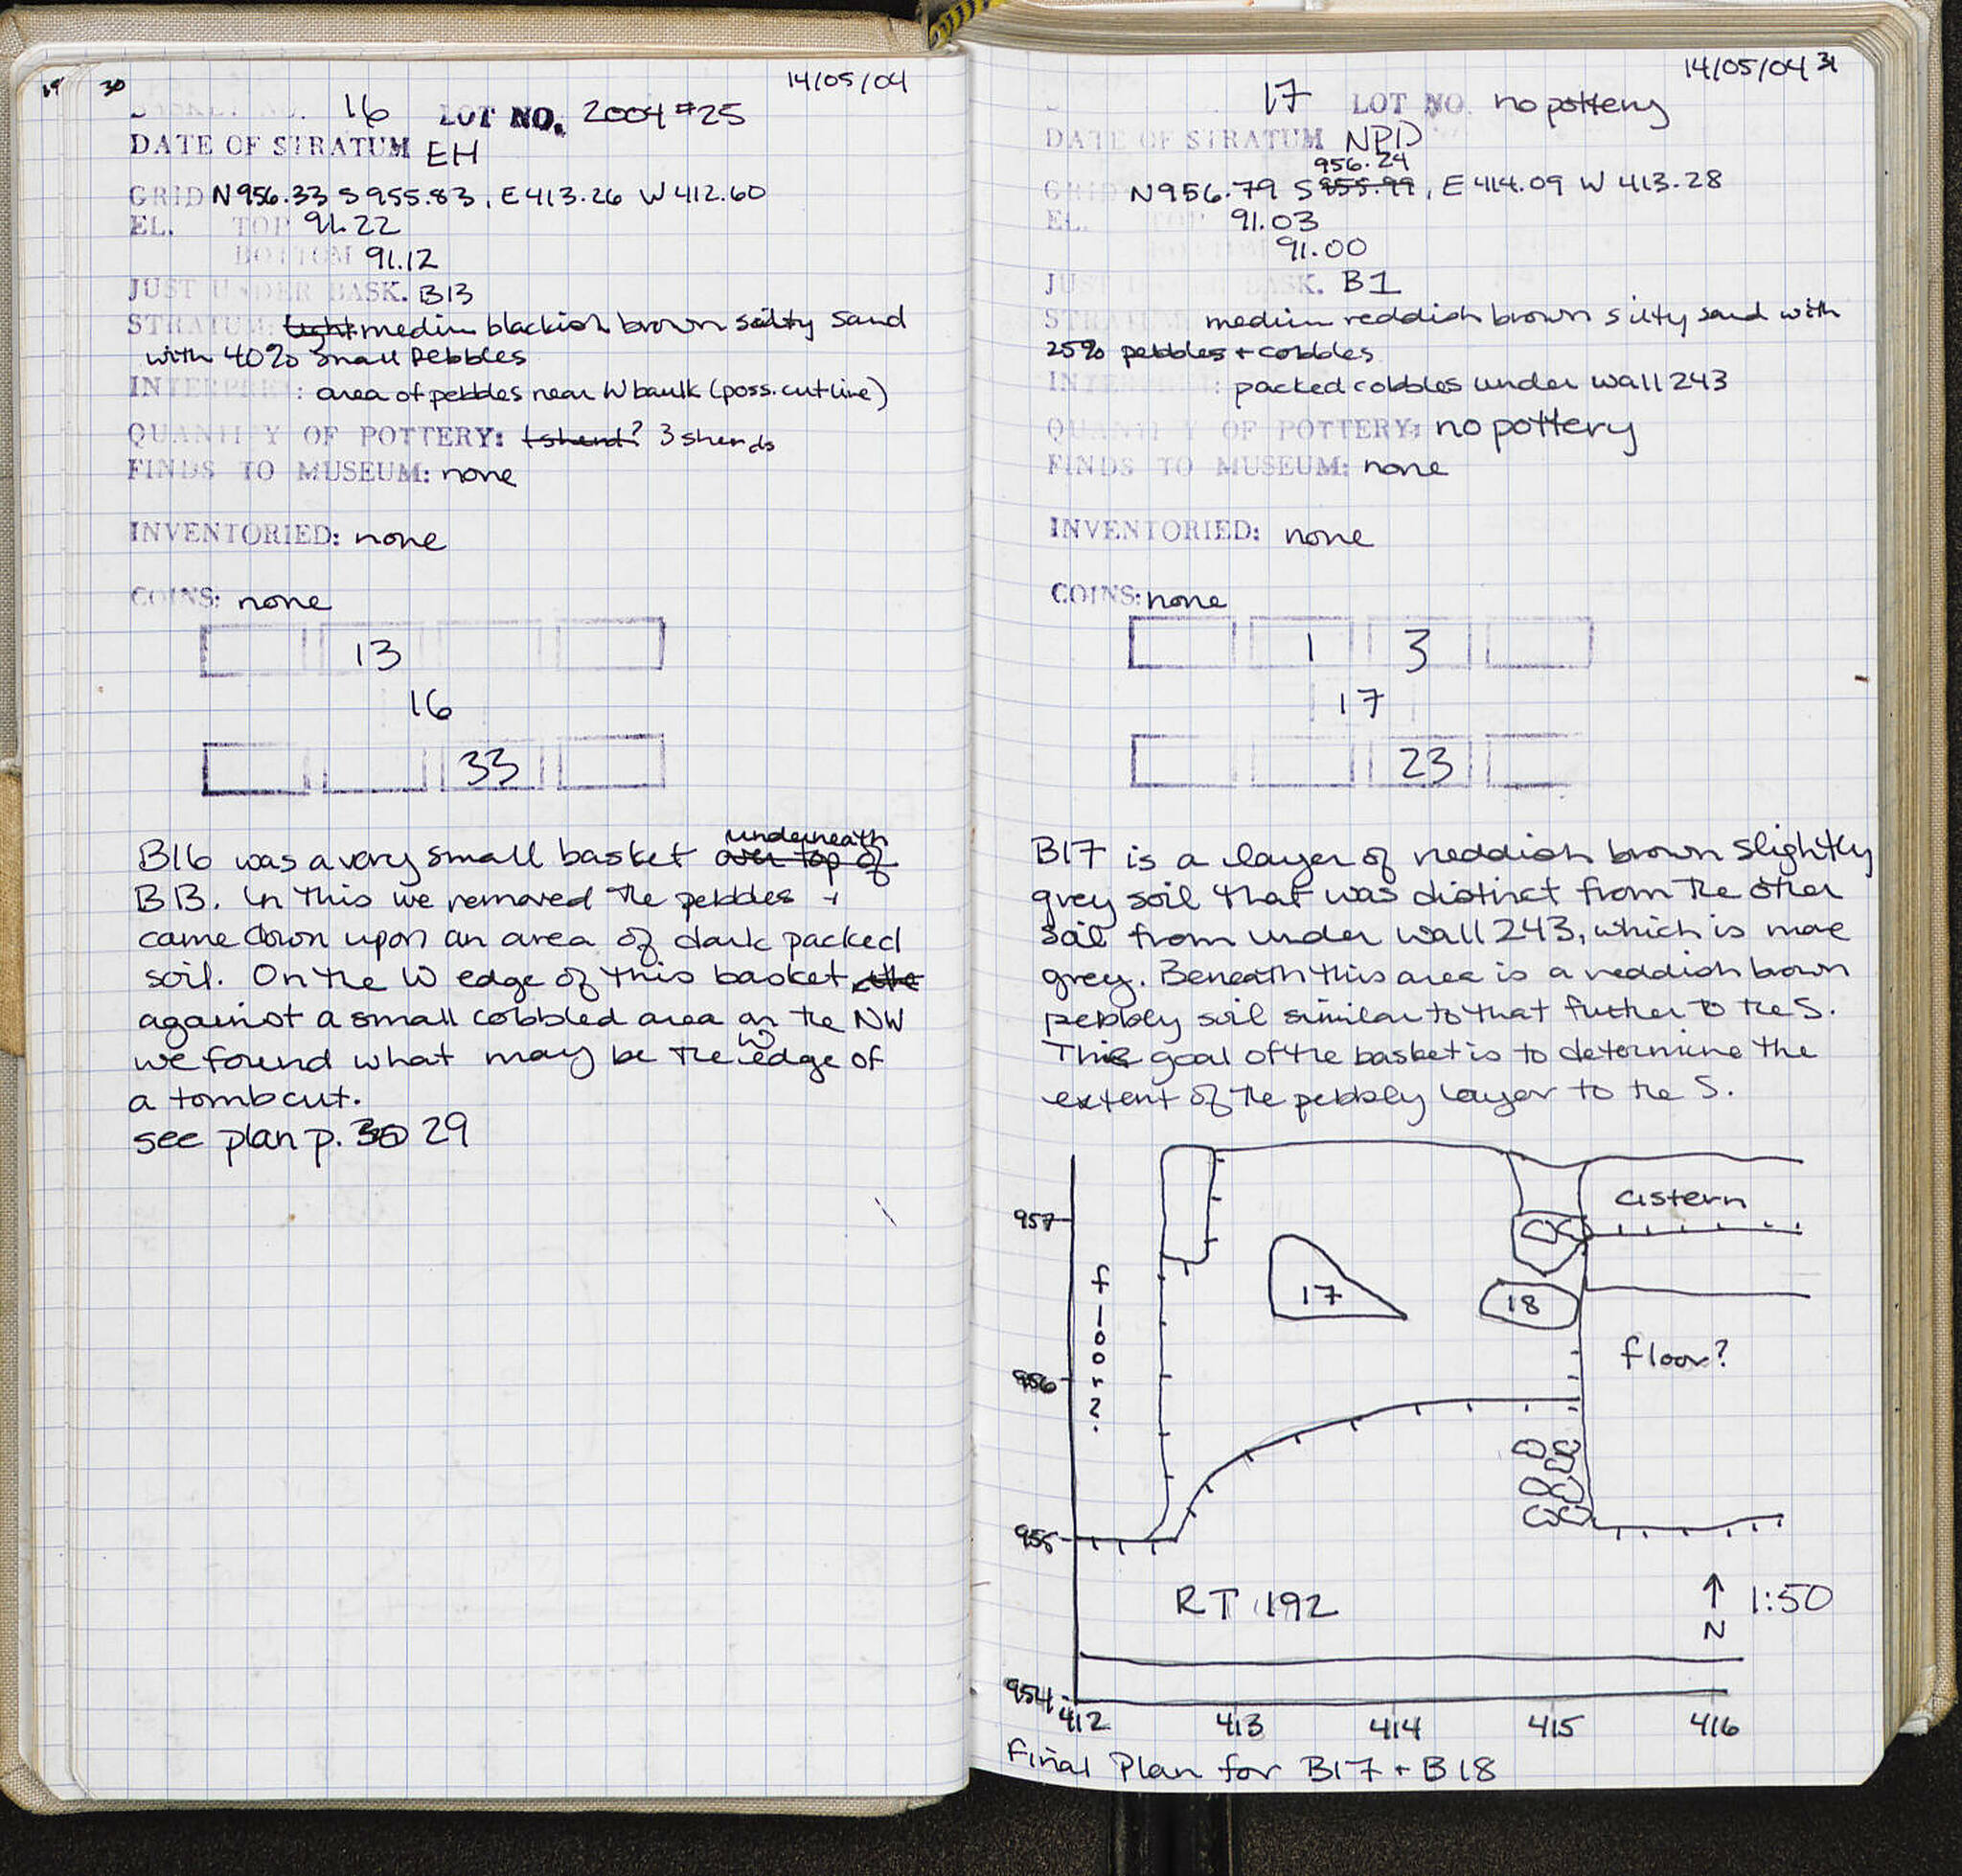 19 30 14/05/04
BASKET NO. 16 LOT NO. 2004 #25
DATE OF STRATUM EH
GRID N956.33 S955.83, E413.26 W412.60
EL. TOP 91.22
BOTTOM 91.12
JUST UNDER BASK. B13
STRATUM: light medium blackish brown salty sand
with 40% small pebbles
INTERPRET: area of pebbles near W baulk (poss. cut line)
QUANTITY OF POTTERY: 1 sherd? 3 sherds
FINDS TO MUSEUM: none
INVENTORIED: none
COINS: none
13
16
33
underneath
B16 was a very small basket over top of
B13. In this we removed the pebbles +
came down upon an area of dark packed
soil. On the W edge of this basket, the
against a small cobbled area on the NW
W
we found what may be the edge of
a tomb cut.
see plan p. 30 29
14/05/04 31
17 LOT NO. no pottery
DATE OF STRATUM NPD
956.24
GRID N956.79 S 955.99, E414.09 W 413.28
EL. TOP 91.03
91.00
JUST UNDER BASK. B1
STRATUM: medium reddish brown silty sand with
25% pebbles + cobbles
INTERPRET: packed cobbles under wall 243
QUANTITY OF POTTERY: no pottery
FINDS TO MUSEUM: none
INVENTORIED: none
COINS: none
1 3
17
23
B17 is a layer of reddish brown slightly
grey soil that was distinct from the other
soil from under wall 243, which is more
grey. Beneath this area is a reddish brown
pebbly soil similar to that further to the S.
The goal of the basket is to determine the
extent of the pebbly layer to the S.
cistern
957
floor?
17
18
floor?
956
955
RT 192
N
1:50
954
412 413 414 415 416
Final Plan for B17 + B18